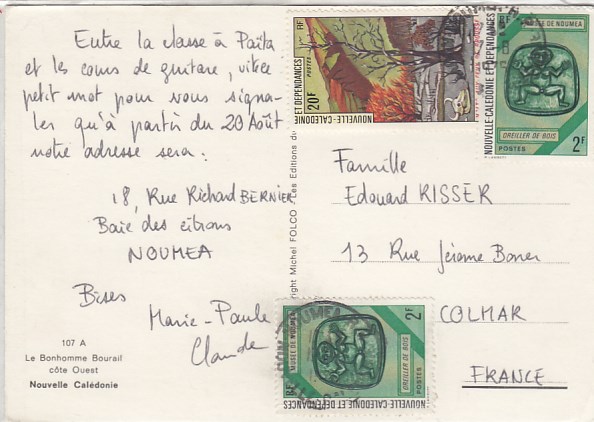 Entre la classe à Païta
et les cours de guitare, vite
petit mot pour vous signa-
ler qu'à partir du 20 Août
notre adresse sera :
18, Rue Richard BERNIER
Baie des citrons
NOUMEA
Bises
Marie-Paule
Claude
107 A
Le Bonhomme Bourail
côte Ouest
Nouvelle Calédonie
ght Michel FOLCO - Les Editions d
Famille
Edouard RISSER
13 Rue Jérôme Boner
COLMAR
FRANCE
RF
POSTES
20F
NOUVELLE-CALÉDONIE
ET DÉPENDANCES
RF
MUSÉE DE NOUMEA
NOUVELLE-CALÉDONIE ET DÉPENDANCES
OREILLER DE BOIS
POSTES
2F
RF
MUSÉE DE NOUMEA
NOUVELLE-CALÉDONIE ET DÉPENDANCES
OREILLER DE BOIS
POSTES
2F
NOUMEA